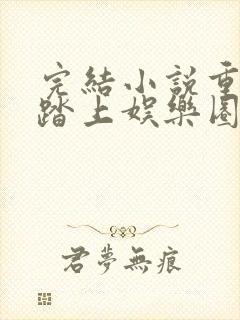 完結小説重
踏上娛樂圈
君夢無痕